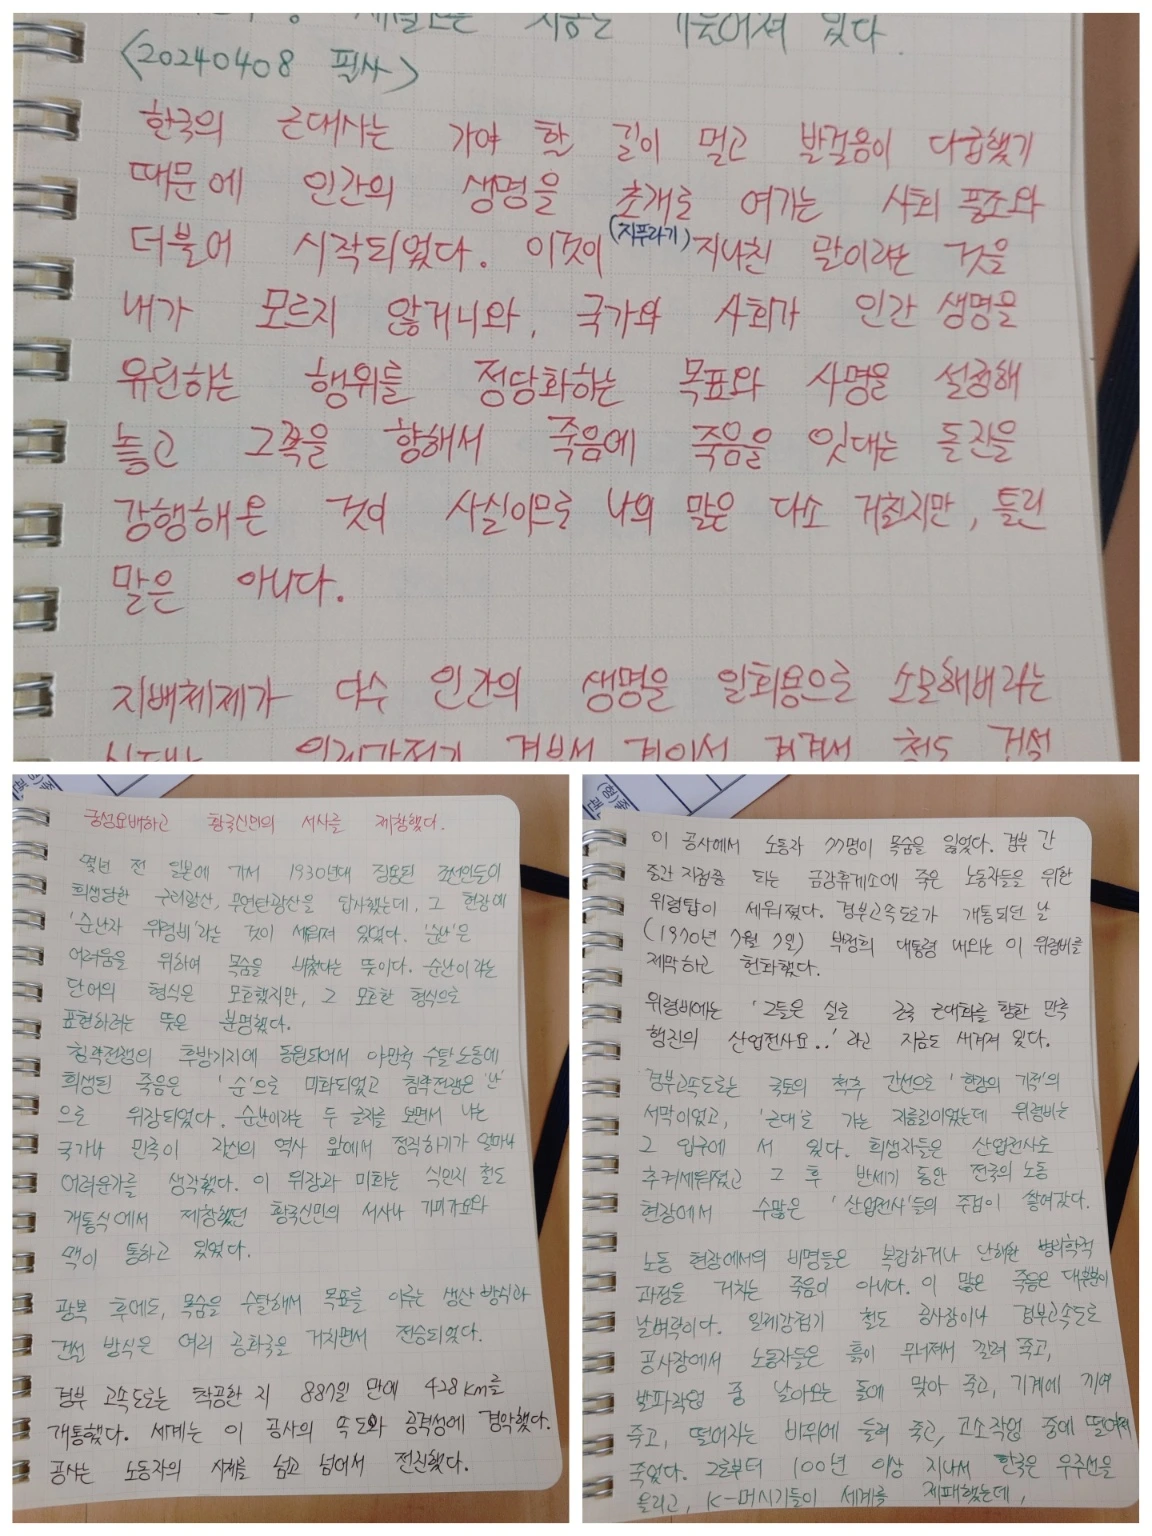 지층은 기울어져 있다.
<20240408 필사>
한국의 근대사는 가야 할 길이 멀고 발걸음이 다급했기
때문에 인간의 생명을 초개로 여기는 사회 풍조와
(지푸라기)
더불어 시작되었다. 이것이 지나친 말이라는 것을
내가 모르지 않거니와, 국가와 사회가 인간 생명을
유린하는 행위를 정당화하는 목표와 사명을 설정해
놓고 그쪽을 향해서 죽음에 죽음을 잇대는 돌진을
강행해온 것이 사실이므로 나의 말은 다소 거칠지만, 틀린
말은 아니다.
지배체제가 다수 인간의 생명을 일회용으로 소모해버리는
일제강점기 경부선 경의선 경원선 철도 건설
궁성요배하고 황국신민의 서사를 제창했다.
몇년 전 일본에 가서 1930년대 징용된 조선인들이
희생당한 구리광산, 무연탄광산을 답사했는데, 그 현장에
'순난자 위령비'라는 것이 세워져 있었다. '순난'은
어려움을 위하여 목숨을 바쳤다는 뜻이다. 순난이라는
단어의 형식은 모호했지만, 그 모호한 형식으로
표현하려는 뜻은 분명했다.
침략전쟁의 후방기지에 동원되어서 야만적 수탈노동에
희생된 죽음은 '순'으로 미화되었고 침략전쟁은 '난'
으로 위장되었다. 순난이라는 두 글자를 보면서 나는
국가나 민족이 자신의 역사 앞에서 정직하기가 얼마나
어려운가를 생각했다. 이 위장과 미화는 식민지 철도
개통식에서 제창했던 황국신민의 서사나 기미가요와
맥이 통하고 있었다.
광복 후에도, 목숨을 수탈해서 목표를 이루는 생산 방식과
건설 방식은 여러 공화국을 거치면서 전승되었다.
경부 고속도로는 착공한 지 887일 만에 428km를
개통했다. 세계는 이 공사의 속도와 공격성에 경악했다.
공사는 노동자의 시체를 넘고 넘어서 전진했다.
이 공사에서 노동자 77명이 목숨을 잃었다. 경부 간
중간 지점쯤 되는 금강휴게소에 죽은 노동자들을 위한
위령탑이 세워졌다. 경부고속도로가 개통되던 날
(1970년 7월 7일) 박정희 대통령 내외는 이 위령비를
제막하고 헌화했다.
위령비에는 '그들은 실로 조국 근대화를 향한 민족
행진의 산업전사요..' 라고 지금도 새겨져 있다.
경부고속도로는 국토의 척추 간선으로 '한강의 기적'의
서막이었고, '근대'로 가는 지름길이었는데 위령비는
그 입구에 서 있다. 희생자들은 산업전사로
추켜세워졌고 그 후 반세기 동안 전국의 노동
현장에서 수많은 '산업전사'들의 주검이 쌓여갔다.
노동 현장에서의 비명들은 복잡하거나 난해한 병리학적
과정을 거치는 죽음이 아니다. 이 많은 죽음은 대부분이
날벼락이다. 일제강점기 철도 공사장이나 경부고속도로
공사장에서 노동자들은 흙이 무너져서 깔려 죽고,
발파작업 중 날아오는 돌에 맞아 죽고, 기계에 끼여
죽고, 떨어지는 바위에 눌려 죽고, 고소작업 중에 떨어져
죽었다. 그로부터 100년 이상 지나서 한국은 우주선을
올리고, K-머시기들이 세계를 제패했는데,